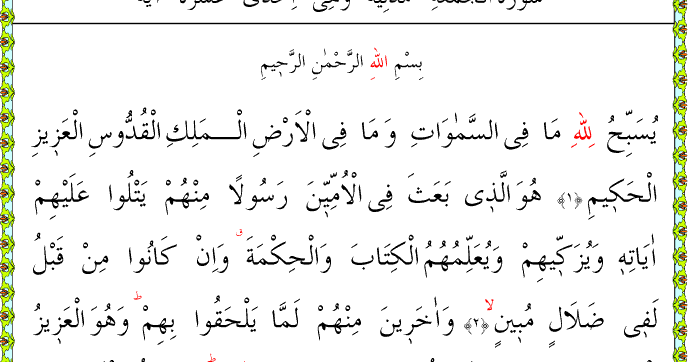 بِسْمِ اللهِ الرَّحْمٰنِ الرَّحٖيمِ
يُسَبِّحُ لِلّٰهِ مَا فِى السَّمٰوَاتِ وَمَا فِى الْاَرْضِ الْمَلِكِ الْقُدُّوسِ الْعَزٖيزِ
الْحَكٖيمِ ﴿١﴾ هُوَ الَّذٖى بَعَثَ فِى الْاُمِّيّٖنَ رَسُولًا مِنْهُمْ يَتْلُوا عَلَيْهِمْ
اٰيَاتِهٖ وَيُزَكّٖيهِمْ وَيُعَلِّمُهُمُ الْكِتَابَ وَالْحِكْمَةَ ۗ وَاِنْ كَانُوا مِنْ قَبْلُ
لَفٖى ضَلَالٍ مُبٖينٍ ۙ ﴿٢﴾ وَاٰخَرٖينَ مِنْهُمْ لَمَّا يَلْحَقُوا بِهِمْ ؕ وَهُوَ الْعَزٖيزُ